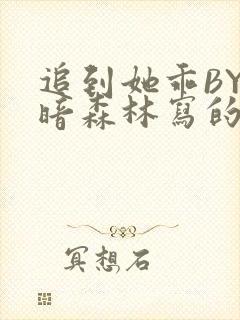 追到她乖BY
暗森林寫的
冥想石